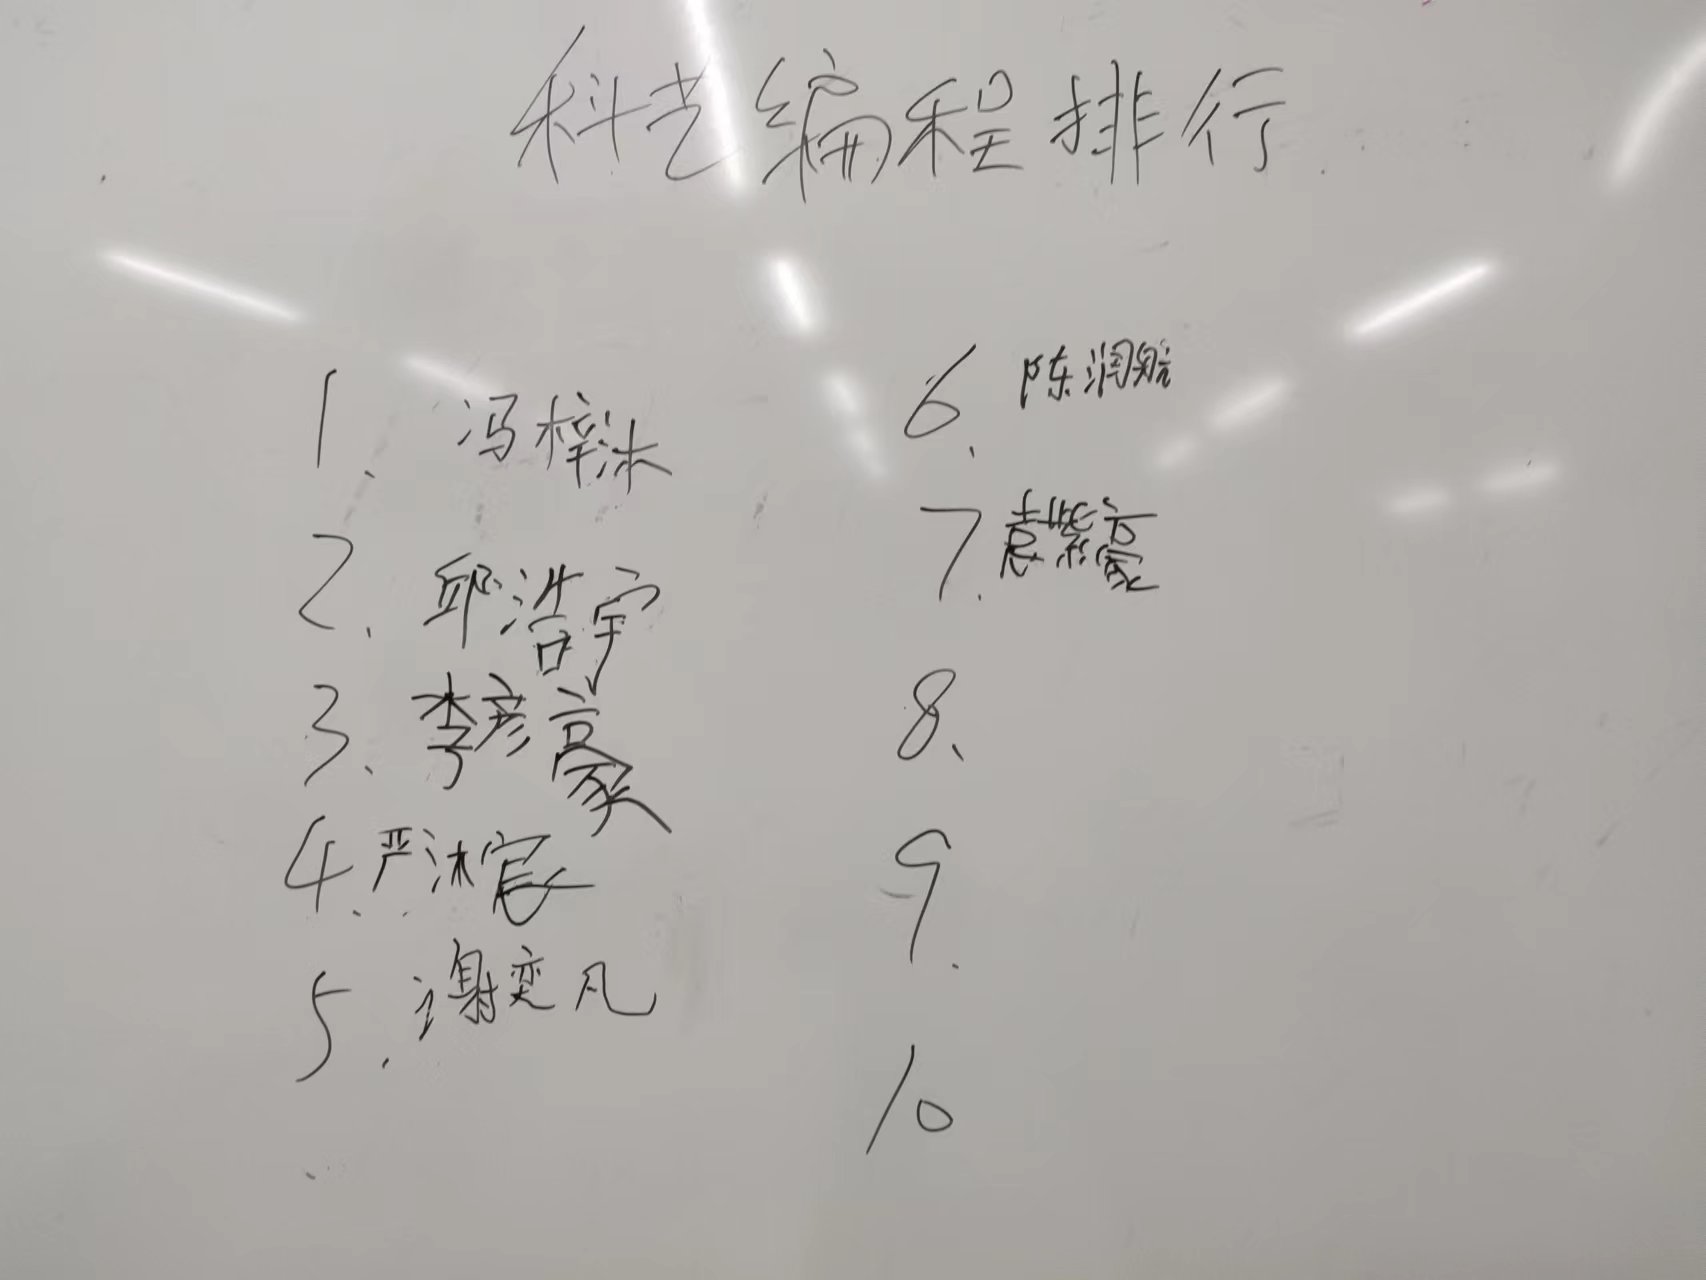 科艺编程排行
1. 冯梓沐
2. 邱浩宇
3. 李彦豪
4. 严沐宸
5. 谢奕凡
6. 陈润航
7. 袁紫豪
8.
9.
10